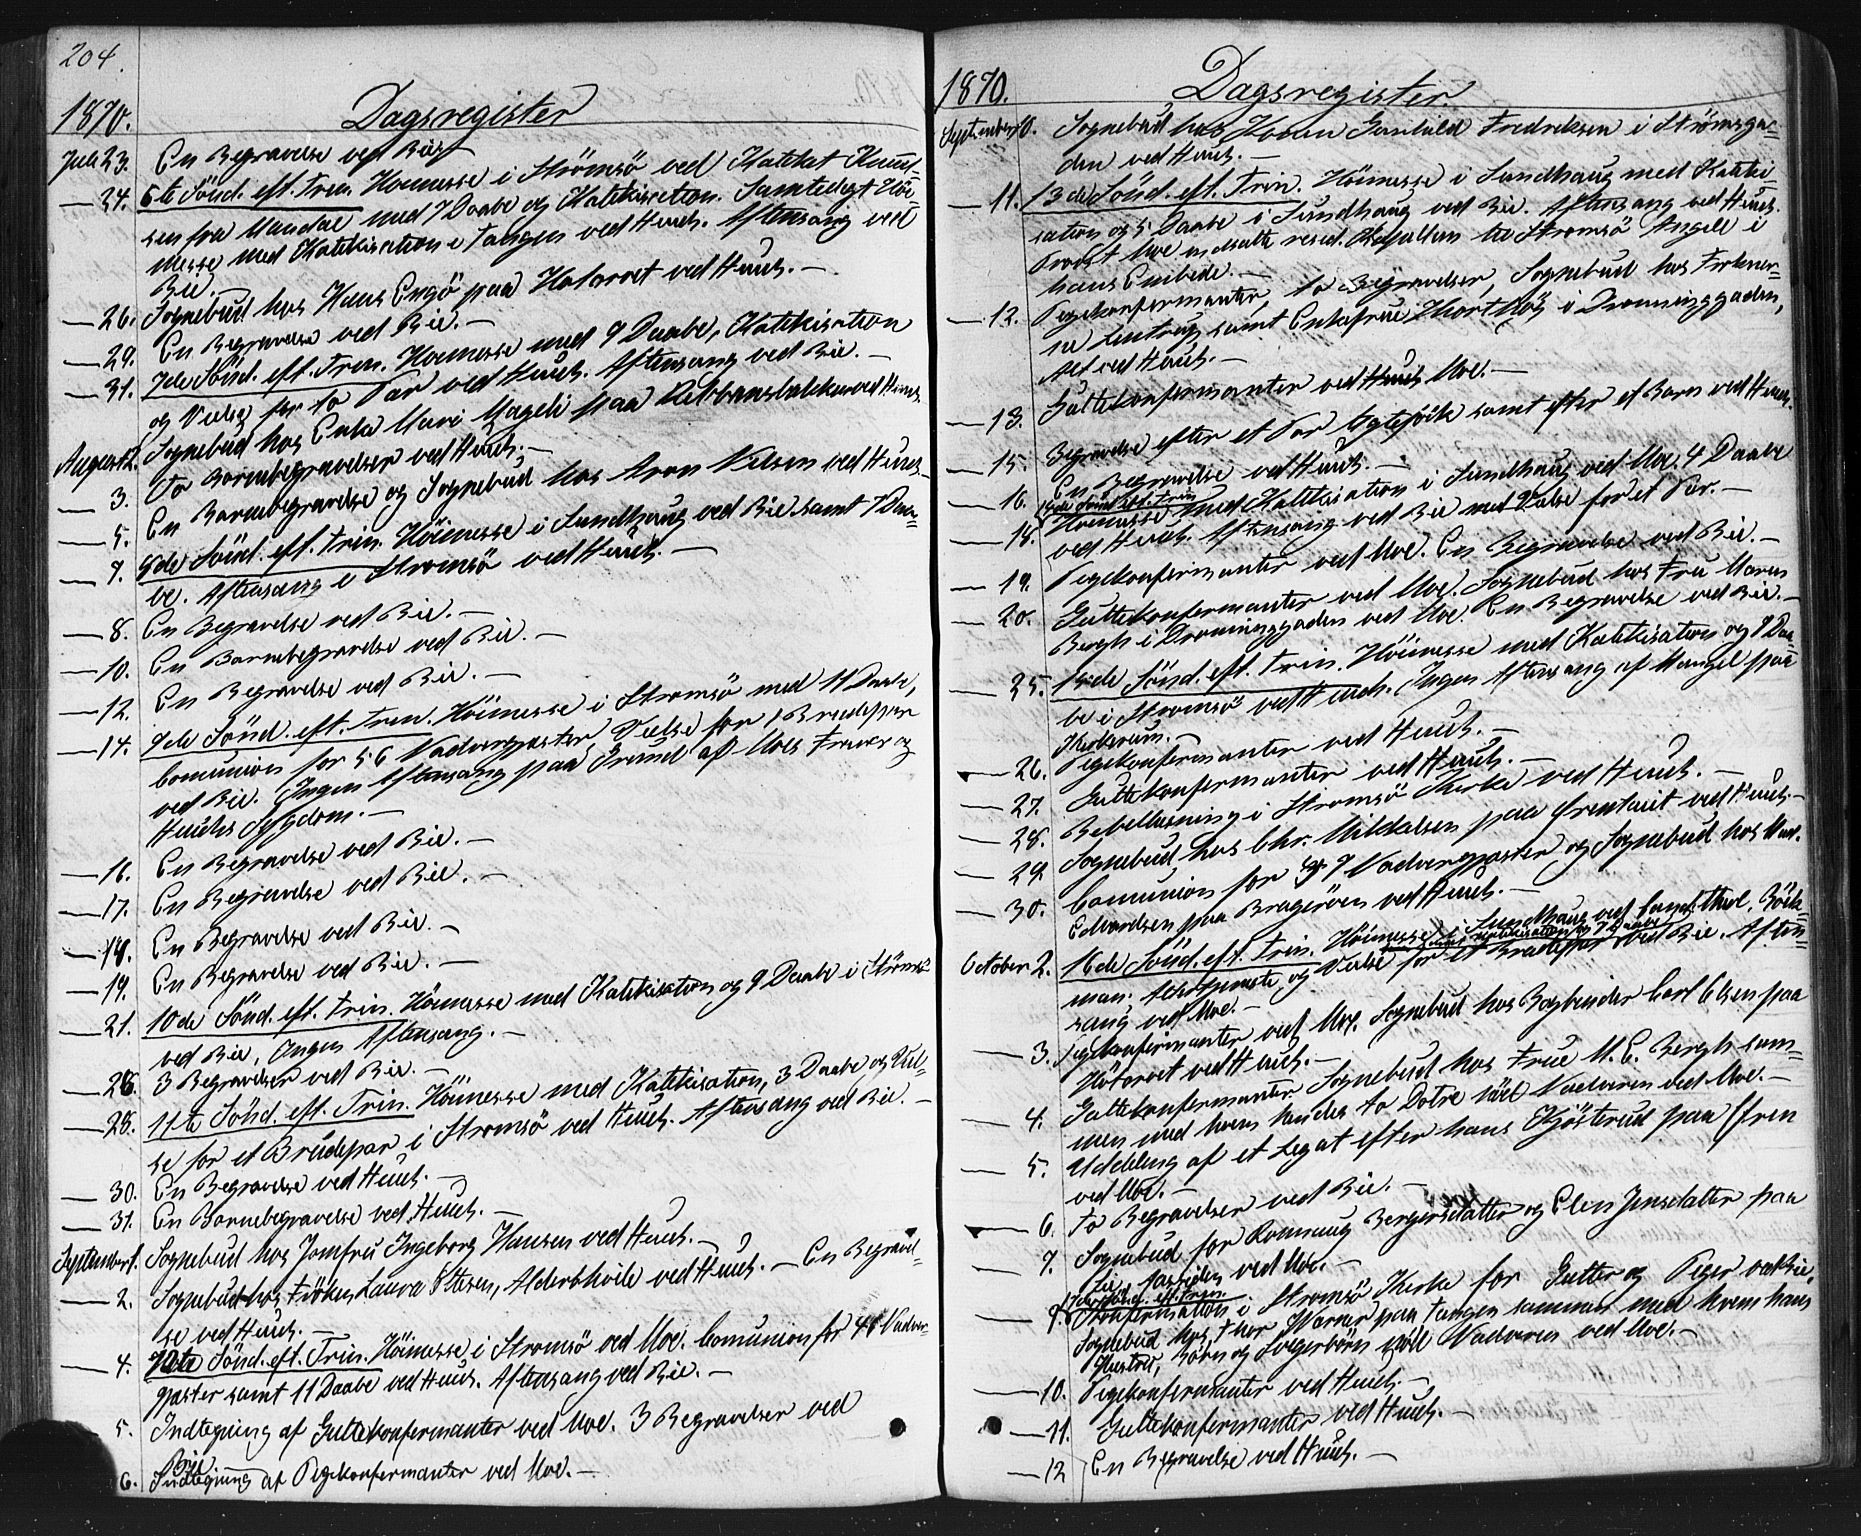 204.
1870. Dagsregister
Juli 23. En Begravelse ved Bie. —
— 24. 6te Sönd. eft. Trin. Høimesse i Strömsö ved Katekat Knud=
sen fra Mandal med 7 Daabe og Katekisation. Samtidigt Höi=
messe med Katekisation i Tangen ved Huus. Aftensang ved
Bie. —
— 26. Sognebud hos Hans Engö paa ved Huus. —
— 29. En Begravelse ved Bie. —
— 31. 7de Sönd. eft. Trin. Höimesse med 9 Daabe, Katekisation
og Vielse for to Par ved Huus. Aftensang ved Bie. —
August 2. Sognebud hos Enke Mari Mageli paa ved Huus.
— 3. To Barnebegravelser ved Huus. —
— 5. En Barnebegravelse og Sognebud hos Aron Nilsen ved Huus. —
— 7. 8de Sönd. eft. Trin. Höimesse i Sundhaug ved Bie samt 7 Daa=
be. Aftensang i Stromsö ved Huus. —
— 8. En Begravelse ved Bie. —
— 10. En Barnebegravelse ved Bie. —
— 12. En Begravelse ved Bie. —
— 14. 9de Sönd. eft. Trin. Höimesse i Stromsö med 11 Daabe,
Comunion for 56 Nadvergjæster, Vielse for 1 Brudepar
ved Bie. Ingen Aftensang paa Grund af Moes Fravær og
Huuhs Sygdom. —
— 16. En Begravelse ved Bie. —
— 17. En Begravelse ved Bie. —
— 18. En Begravelse ved Bie. —
— 19. En Begravelse ved Bie. —
— 21. 10de Sönd. eft. Trin. Höimesse med Katekisation og 9 Daabe i Strömsö
ved Bie. Ingen Aftensang. —
— 26. 3 Begravelser ved Bie. —
— 28. 11te Sönd. eft. Trin. Höimesse med Katekisation, 3 Daabe og Viel=
se for et Brudepar i Stromsö ved Huus. Aftensang ved Bie. —
— 30. En Begravelse ved Huus. —
— 31. En Barnebegravelse ved Huus. —
September 1. Sognebud hos Jomfru Ingeborg Hansen ved Huus. —
— 2. Sognebud hos Fröken Laura Ottesen, Aldershvile ved Huus. — En Begravel=
se ved Huus. —
— 4. 12te Sönd. eft. Trin. Höimesse i Stromsö ved Moe. Comunion for 41 Nadver=
gjæster samt 11 Daabe ved Huus. Aftensang ved Bie. —
5. Indtegning af Guttekonfermanter ved Moe. 3 Begravelser ved
Bie.
6. Indtegning af Pigekonfermanter ved Moe. —
1870. Dagsregister.
September 10. Sognebud hos Konen Gunhild Fredriksen i Strømsgaar=
den ved Huus. —
— 11. 13de Sönd. eft. Trin. Höimesse i Sundhaug med Kateki=
sation og 5 Daabe i Sundhaug ved Bie. Aftensang ved Huus.
Provst Moe indsatte resid. Kapellan til Stromsö Angell i
hans Embede. —
— 12. Pigekonfermanter, to Begravelser, Sognebud hos
samt Enkefrue i Dronninggaden,
Alt ved Huus. —
— 13. Guttekonfermanter ved Moe. —
— 15. Begravelse efter et Par Ægtefölk samt efter et Barn ved Huus.
— 16. En Begravelse ved Huus. —
14de Sönd. eft. Trin
— 18. Höimesse med Katekisation i Sundhaug ved Moe, 4 Daabe
ved Huus. Aftensang ved Bie med Vielse for et Par. —
— 19. Pigekonfermanter ved Moe. En Begravelse ved Bie. —
— 20. Guttekonfermanter ved Moe. Sognebud hos Fru Maren
Bergh i Droninggaden ved Moe. En Begravelse ved Bie. —
— 25. 15de Sönd. eft. Trin. Höimesse med Katekisation og 9 Daa=
be i Stromsö ved Huus. Ingen Aftensang af Mangel paa
Kirkerum. —
— 26. Pigekonfermanter ved Huus. —
— 27. Guttekonfermanter ved Huus. —
— 28. Bibellæsning i Stromsö Kirke ved Huus. —
— 29. Sognebud hos Chr. Mikkelsen paa Ørentoft ved Huus. —
— 30. Comunion for 9 Nadvergjæster og Sognebud hos
Edvardsen paa Bragerøen ved Huus. —
October 2. 16de Sönd. eft. Trin. Höimesse i Sundhaug ved Cand. theol. Böck=
man; og Vielse for et Brudepar ved Bie. Aften=
sang ved Moe. —
— 3. Pigekonfirmanter ved Moe. Sognebud hos Bogbinder Carl Olsen paa
Hötorvet ved Huus. —
— 4. Guttekonfermanter. Sognebud hos Frue M. C. Bergh sam=
men med hvem hendes to Dotre nöd Nadveren ved Moe. —
— 5. Uddeling af et Legat efter Hans Kjösterud paa Øren
ved Moe. —
— 6. To Begravelser ved Bie. —
— 7. Sognebud for Romnaug Bergersdatter og Elen Jensdatter paa
ved Moe. —
17de Sönd. eft. Trin
— 9. Konfermation i Stromsö Kirke for Gutter og Piger ved Bie.
Sognebud hos Thor Warner paa Tangen sammen med hvem hans
Hustru, Börn og Svigerbörn nöd Nadveren ved Moe. —
— 10. Pigekonfermanter ved Huus. —
— 11. Guttekonfermanter ved Huus. —
— 12. En Begravelse ved Huus. —